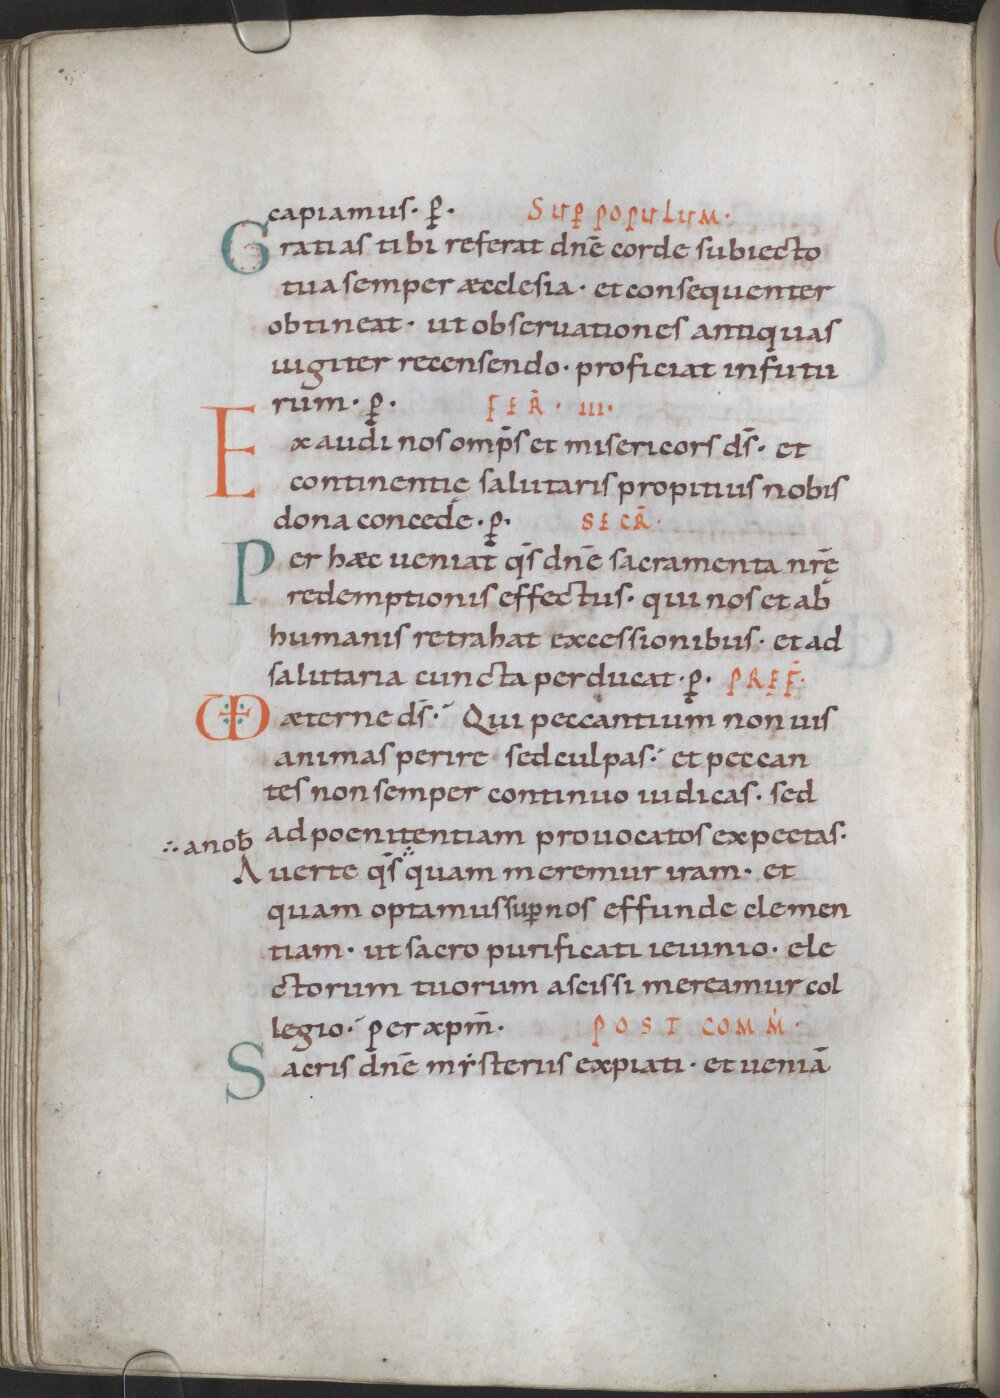 capiamus· p̄· Sup̄ populum·
Gratias tibi referat dn̄e corde subiecto
tua semper æcclesia· et consequenter
obtineat· ut obseruationes antiquas
iugiter recensendo· proficiat in futu
rum· p̄· FER̄· III·
Exaudi nos omp̄s et misericors ds̄· et
continentię salutaris propitius nobis
dona concede· p̄· SECR̄·
Per hæc ueniat qs̄ dn̄e sacramenta nr̄ę
redemptionis effectus· qui nos et ab
humanis retrahat excessionibus· et ad
salutaria cuncta perducat· p̄· PREF̄·
VD æterne ds̄· Qui peccantium non uis
animas perire sed culpas· et peccan
tes non semper continuo iudicas· sed
ad poenitentiam prouocatos expectas·
∴ a nob̄
Auerte qs̄ ∴ quam meremur iram· et
quam optamus sup̄ nos effunde clemen
tiam· ut sacro purificati ieiunio· ele
ctorum tuorum ascissi mereamur col
legio· per xpm̄· POST COMM̄·
Sacris dn̄e mẏsteriis expiati· et ueniā